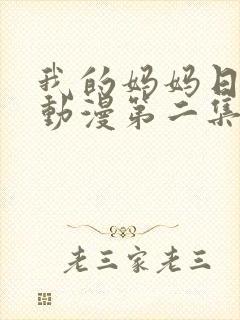 我的妈妈日
動漫第二集
老三家老三